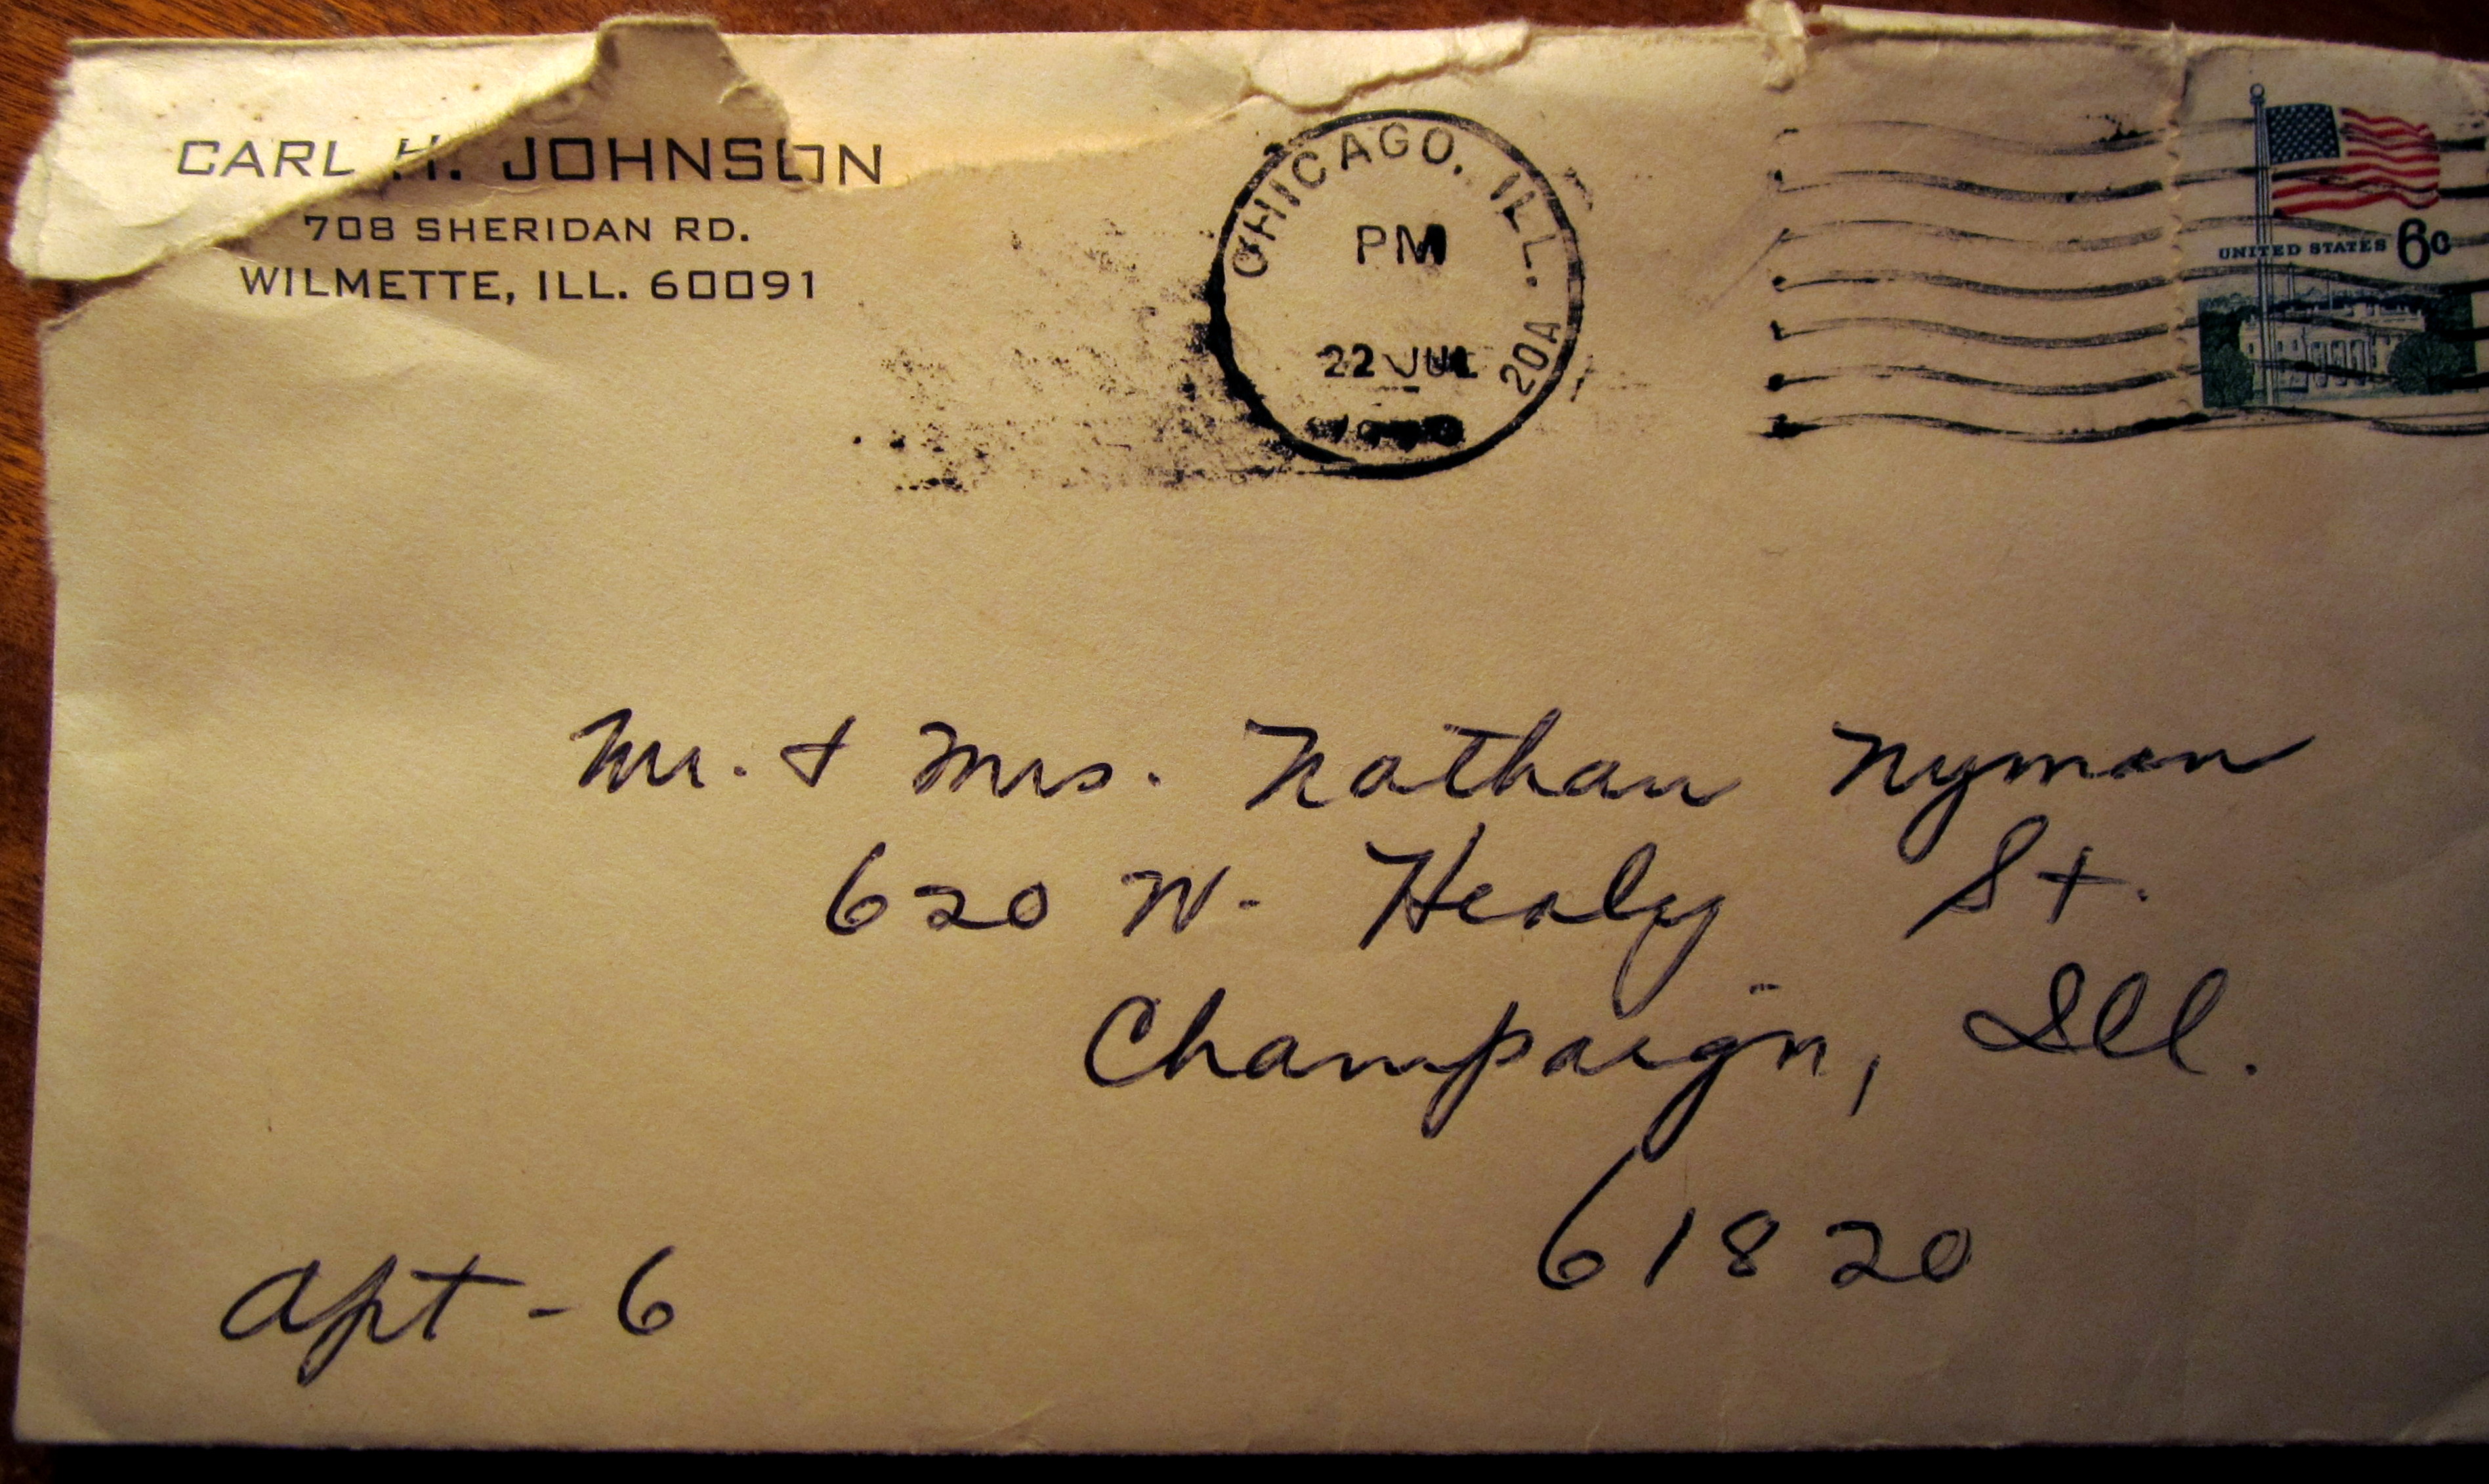 CARL H. JOHNSON
708 SHERIDAN RD.
WILMETTE, ILL. 60091
CHICAGO, ILL. 20A
PM
22 JUL
UNITED STATES 6c
Mr. & Mrs. Nathan Nyman
620 W. Healy St.
Champaign, Ill.
61820
Apt - 6